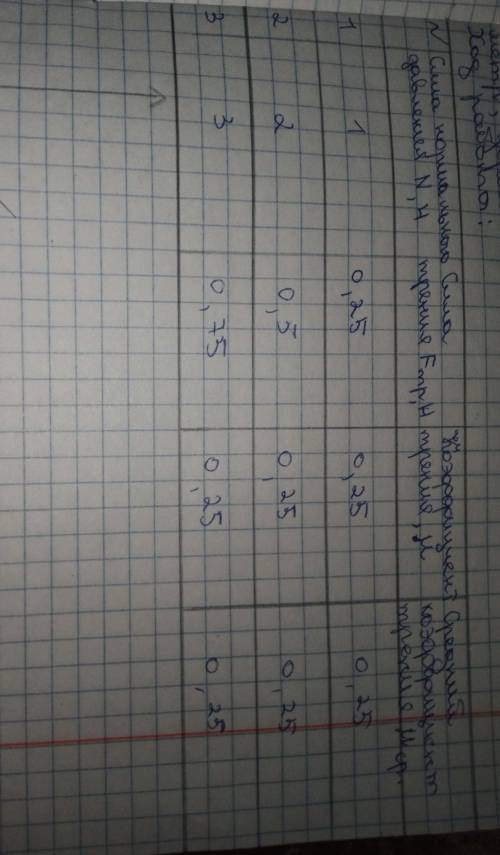 Ход работы:
√ Сила нормального Сила Коэффициент Средний
давления N, Н трения Fтр, Н трения, μ коэффициент
трения μср.
1 1 0,25 0,25 0,25
2 2 0,5 0,25 0,25
3 3 0,75 0,25 0,25